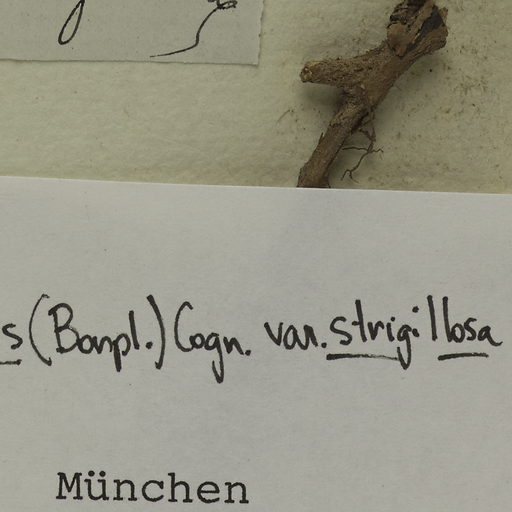 s (Bonpl.) Cogn. var. strigillosa
München